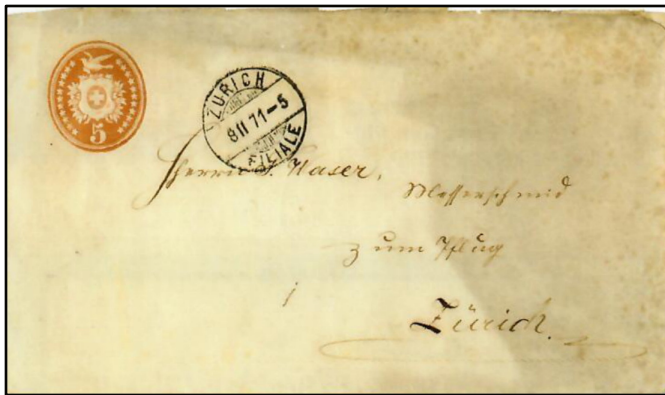 5
ZÜRICH
8 II 71-5
FILIALE
Herrn J. Waser,
Messerschmid
zum Pflug
Zürich.